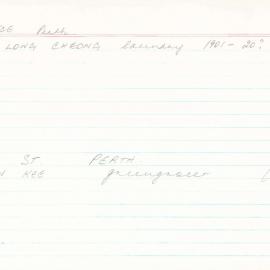 Perth
LONG CHEONG laundry 1901 - 20
ST. PERTH
KEE greengrocer